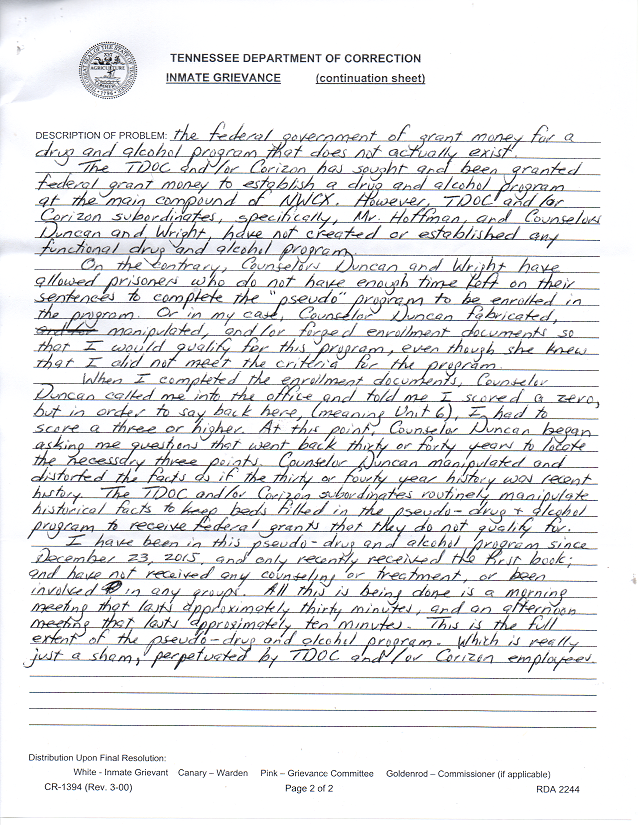 TENNESSEE DEPARTMENT OF CORRECTION
INMATE GRIEVANCE (continuation sheet)
AGRICULTURE
1796
DESCRIPTION OF PROBLEM: the federal government of grant money for a
drug and alcohol program that does not actually exist.
The TDOC and/or Corizon has sought and been granted
federal grant money to establish a drug and alcohol program
at the main compound of NWCX. However, TDOC and/or
Corizon subordinates, specifically, Mr. Hoffman, and Counselors
Duncan and Wright, have not created or established any
functional drug and alcohol program.
On the contrary, Counselors Duncan and Wright have
allowed prisoners who do not have enough time left on their
sentences to complete the "pseudo" program to be enrolled in
the program. Or in my case, Counselor Duncan fabricated,
and/or manipulated, and/or forged enrollment documents so
that I would qualify for this program, even though she knew
that I did not meet the criteria for the program.
When I completed the enrollment documents, Counselor
Duncan called me into the office and told me I scored a zero,
but in order to say back here, (meaning Unit 6), I had to
score a three or higher. At this point, Counselor Duncan began
asking me questions that went back thirty or forty years to locate
the necessary three points. Counselor Duncan manipulated and
distorted the facts as if the thirty or fourty year history was recent
history. The TDOC and/or Corizon subordinates routinely manipulate
historical facts to keep beds filled in the pseudo-drug + alcohol
program to receive federal grants that they do not qualify for.
I have been in this pseudo-drug and alcohol program since
December 23, 2015, and only recently received the first book;
and have not received any counseling or treatment, or been
involved in any groups. All this is being done is a morning
meeting that lasts approximately thirty minutes, and an afternoon
meeting that lasts approximately ten minutes. This is the full
extent of the pseudo-drug and alcohol program. Which is really
just a sham, perpetuated by TDOC and/or Corizon employees.
Distribution Upon Final Resolution:
White - Inmate Grievant Canary – Warden Pink – Grievance Committee Goldenrod – Commissioner (if applicable)
CR-1394 (Rev. 3-00) Page 2 of 2 RDA 2244